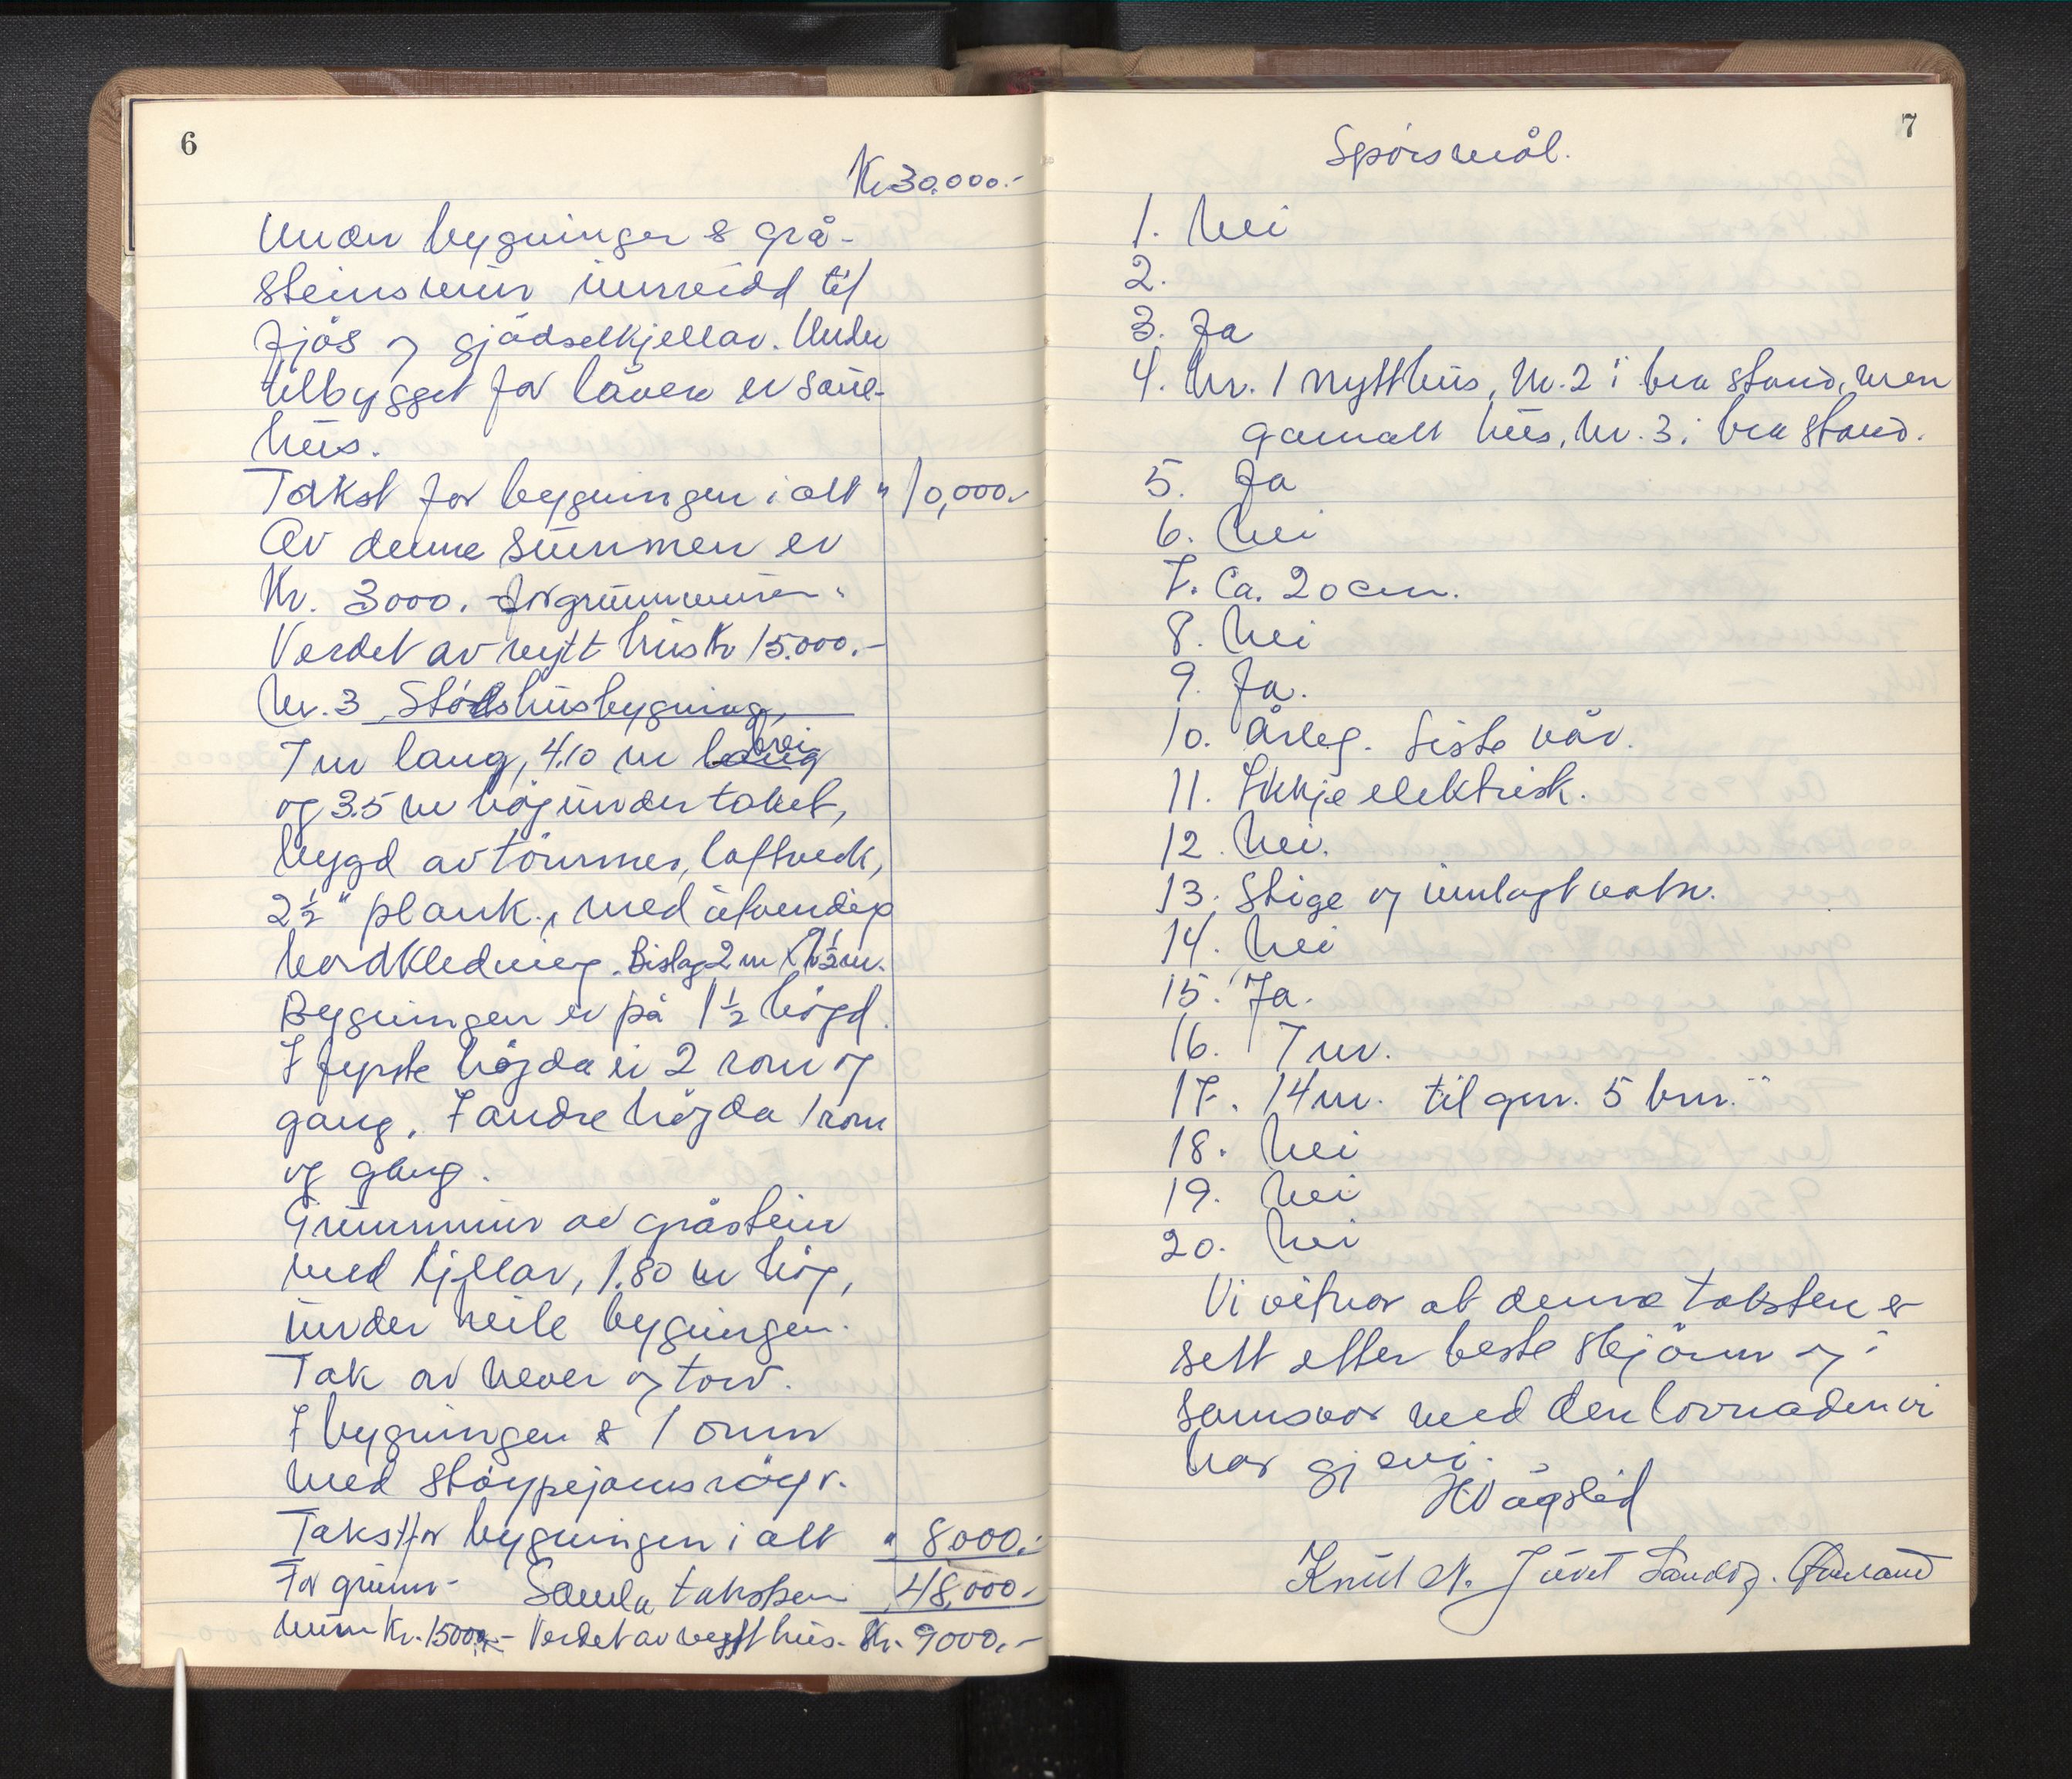 6
Kr 30.000.-
Under bygningen e grå-
steinsmur innreidd til
fjøs og gjødselkjellar. Under
tilbygget for låven er saue-
hus.
Takst for bygningen i alt " 10,000.-
Av denne summen er
Kr. 3000. for grunnmuren.
Verdet av nytt hus Kr 15.000.-
Nr. 3 Stovshusbygning,
7 m lang, 4.10 m brei
og 3.5 m høg under taket,
bygd av tømmer, loftverk,
2½" plank., med utvendig
bordkledning. Bislag 2 m x 1½ m.
Bygningen er på 1½ høgd.
I fyrste høgda er 2 rom og
gang. I andre høgda 1 rom
og gang.
Grunnmur av gråstein
med kjellar, 1.80 m høg,
under heile bygningen.
Tak av never og torv.
I bygningen e 1 omn
med støypejarnsrøyr.
Takst for bygningen i alt " 8000.-
For grunn- Samla taksten 48,000.-
mur Kr. 1500.- Verdet av nytt hus. Kr. 9000.-
7
Spørsmål.
1. Nei
2.
3. Ja
4. Nr. 1 nytt hus, Nr. 2 i bra stand, men
gamalt hus, Nr. 3 i bra stand.
5. Ja
6. Nei
7. Ca. 20 cm.
8. Nei
9. Ja.
10. Årleg. Siste vår.
11. Ikkje elektrisk.
12. Nei.
13. Stige og innlagt vatn.
14. Nei
15. Ja.
16. 7 m.
17. 14 m. til gnr. 5 bnr. "
18. Nei
19. Nei
20. Nei
Vi vitnar at denne taksten er
sett etter beste skjønn og i
samsvar med den lovnaden vi
har gjevi.
H Vågslid
Knut N. Juvet Landog.